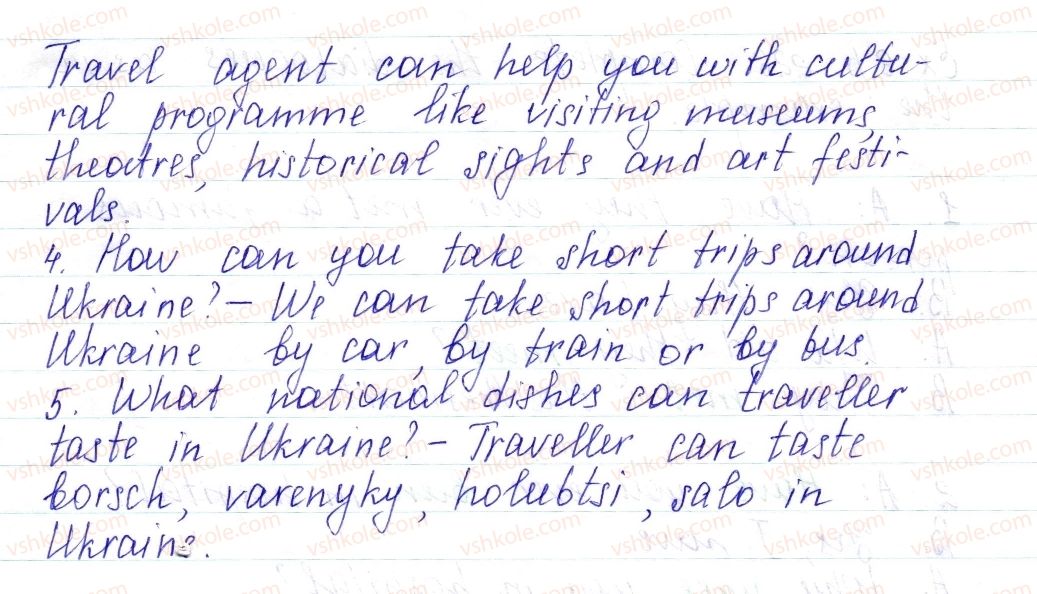 Travel agent can help you with cultu-
ral programme like visiting museums,
theatres, historical sights and art festi-
vals.
4. How can you take short trips around
Ukraine? – We can take short trips around
Ukraine by car, by train or by bus.
5. What national dishes can traveller
taste in Ukraine? – Traveller can taste
borsch, varenyky, holubtsi, salo in
Ukraine.